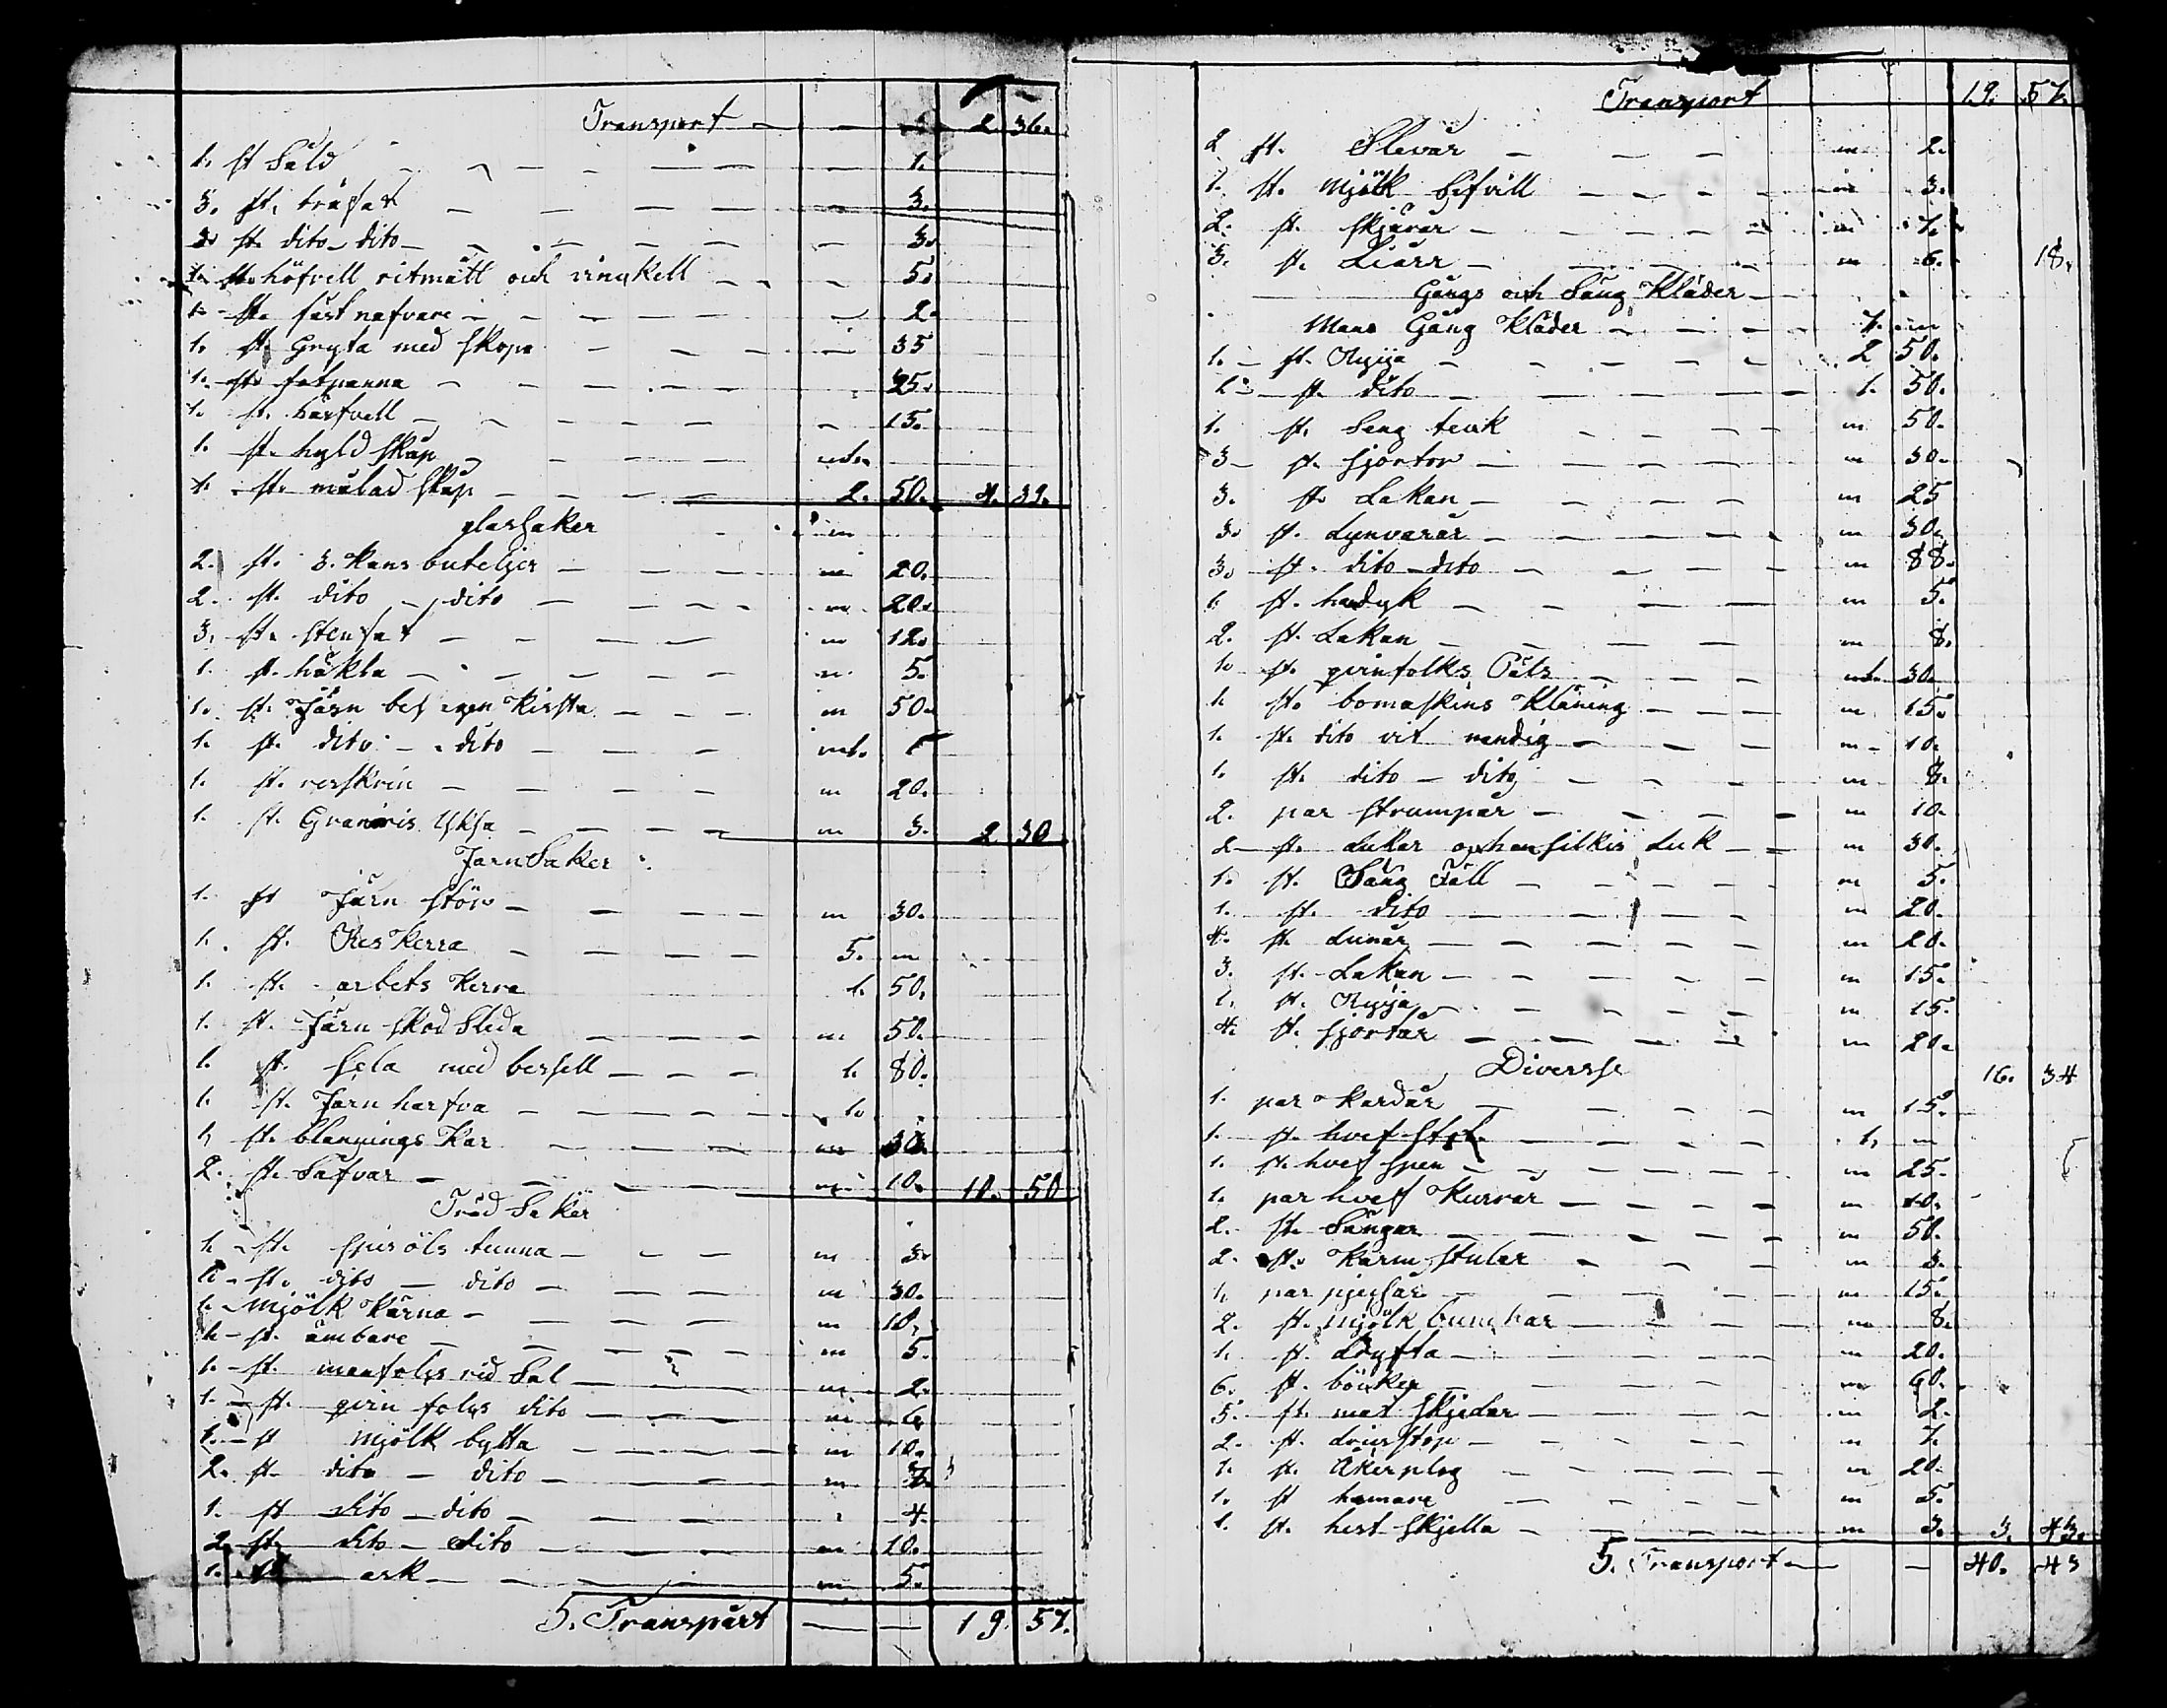 Transport — — 2 36.
1. st Såld — — — 1.
3. st. träfat — — — 3.
3. st. dito dito — — — 3.
1. st. höfvell vitmått och vinkell — — 5.
1. st. fästnafvare — — — 2.
1. st. Gryta med skopa — — — 35
1. st. fatpanna — — — 25.
1. st. härfvell — — — 15.
1. st. hyld skåp — — —
1. st. målad skåp — — — 2. 50. 4. 39.
glassaker
2. st. 3. Kans buteljer — — — " 20.
2. st. dito — dito — — — " 20.
3. st. stenfat — — — " 12.
1. st. häkla — — — " 5.
1. st. Järn beslagen Kirsta — — — " 50.
1. st. dito — dito — — —
1. st. resskrin — — — " 20.
1. st. Granris Yksa — — — " 3. 2 30
JarnSaker
1. st Järn stör — — — " 30.
1. st. Res Kerra — — — 5. "
1. st. arbets Kerra 1. 50.
1. st. Järn skod Slida — — — " 50.
1. st. Sela med bessell — — — 1. 80.
1. st. Jarn harfva — — — 1.
1. st. blangnings Kar — — — " 30.
2. st. Såfvar — — — " 10. 10. 50
Träd Saker
1. st. spisöls tunna — — — " 3.
1. st. dito — dito — — — " 30.
1. Mjölk Kärna — — — " 10.
1. st. ämbare — — — " 5.
1. st. manfolgs rid Sal — — — " 2.
1. st. qvin folgs dito — — — " 6
1. st Mjölk bytta — — — " 10.
2. st. dito — dito — — — "
1. st dito — dito — — — 4.
2. st. dito — dito — — — " 10.
1. ark — — — " 5.
S. Transpårt — — 19. 57.
Transport 19. 57.
2 st. Slevar — — — " 2.
1. st. Mjölk — — — " 3.
2. st. skjäror — — — " 7.
3. st. Liarr — — — " 6. 18.
Gångs och Säng Kläder —
Mans Gång Kläder — — — 7. "
1. st. Rygja — — — 2 50.
1. st. dito — — — 1. 50.
1. st. Seng teck — — — " 50.
3 st. sjortor — — — " 30.
3. st. Lakan — — — " 25
3. st. dynvarar — — — " 30.
3. st. dito — dito — — — " 88.
1. st. handyk — — — " 5.
2. st. Lakan — — — " 8.
1. st. qvinfolks Päls — — — 30.
1. st. bomaskins Kläning — — — " 15.
1. st. dito vit randig — — — " 10.
1. st. dito — dito — — — " 8.
2. par strumpar — — — " 10.
2 st. dukar och en silkis duk — — " 30.
1. st. Säng Fäll — — — " 5.
1. st. dito — — — " 20.
4. st. dunar — — — " 20.
3. st. Lakan — — — " 15.
1. st. Rygja — — — " 15.
4. st. sjortar — — — " 20.
Diversse 16. 34
1. par Kardar — — — " 15.
1. st. hvef stol — — — 1. "
1. st. hvef spen — — — " 25.
1. par hvef Kurvar — — — " 10.
2. st. Sängar — — — " 50.
2. st. Karm stular — — — " 3.
1. par pjeksar — — — " 15.
2. st. mjölk bunkar — — — " 8.
1. st. dryfta — — — " 20.
6. st. böcker — — — " 60.
5. st. mat skjedar — — — " 2.
2. st. — — — " 7.
1. st. Åkerplog — — — " 20.
1. st hamare — — — " 5.
1. st. hest skjella — — — " 3. 3. 43.
S. Transport — — 40. 43